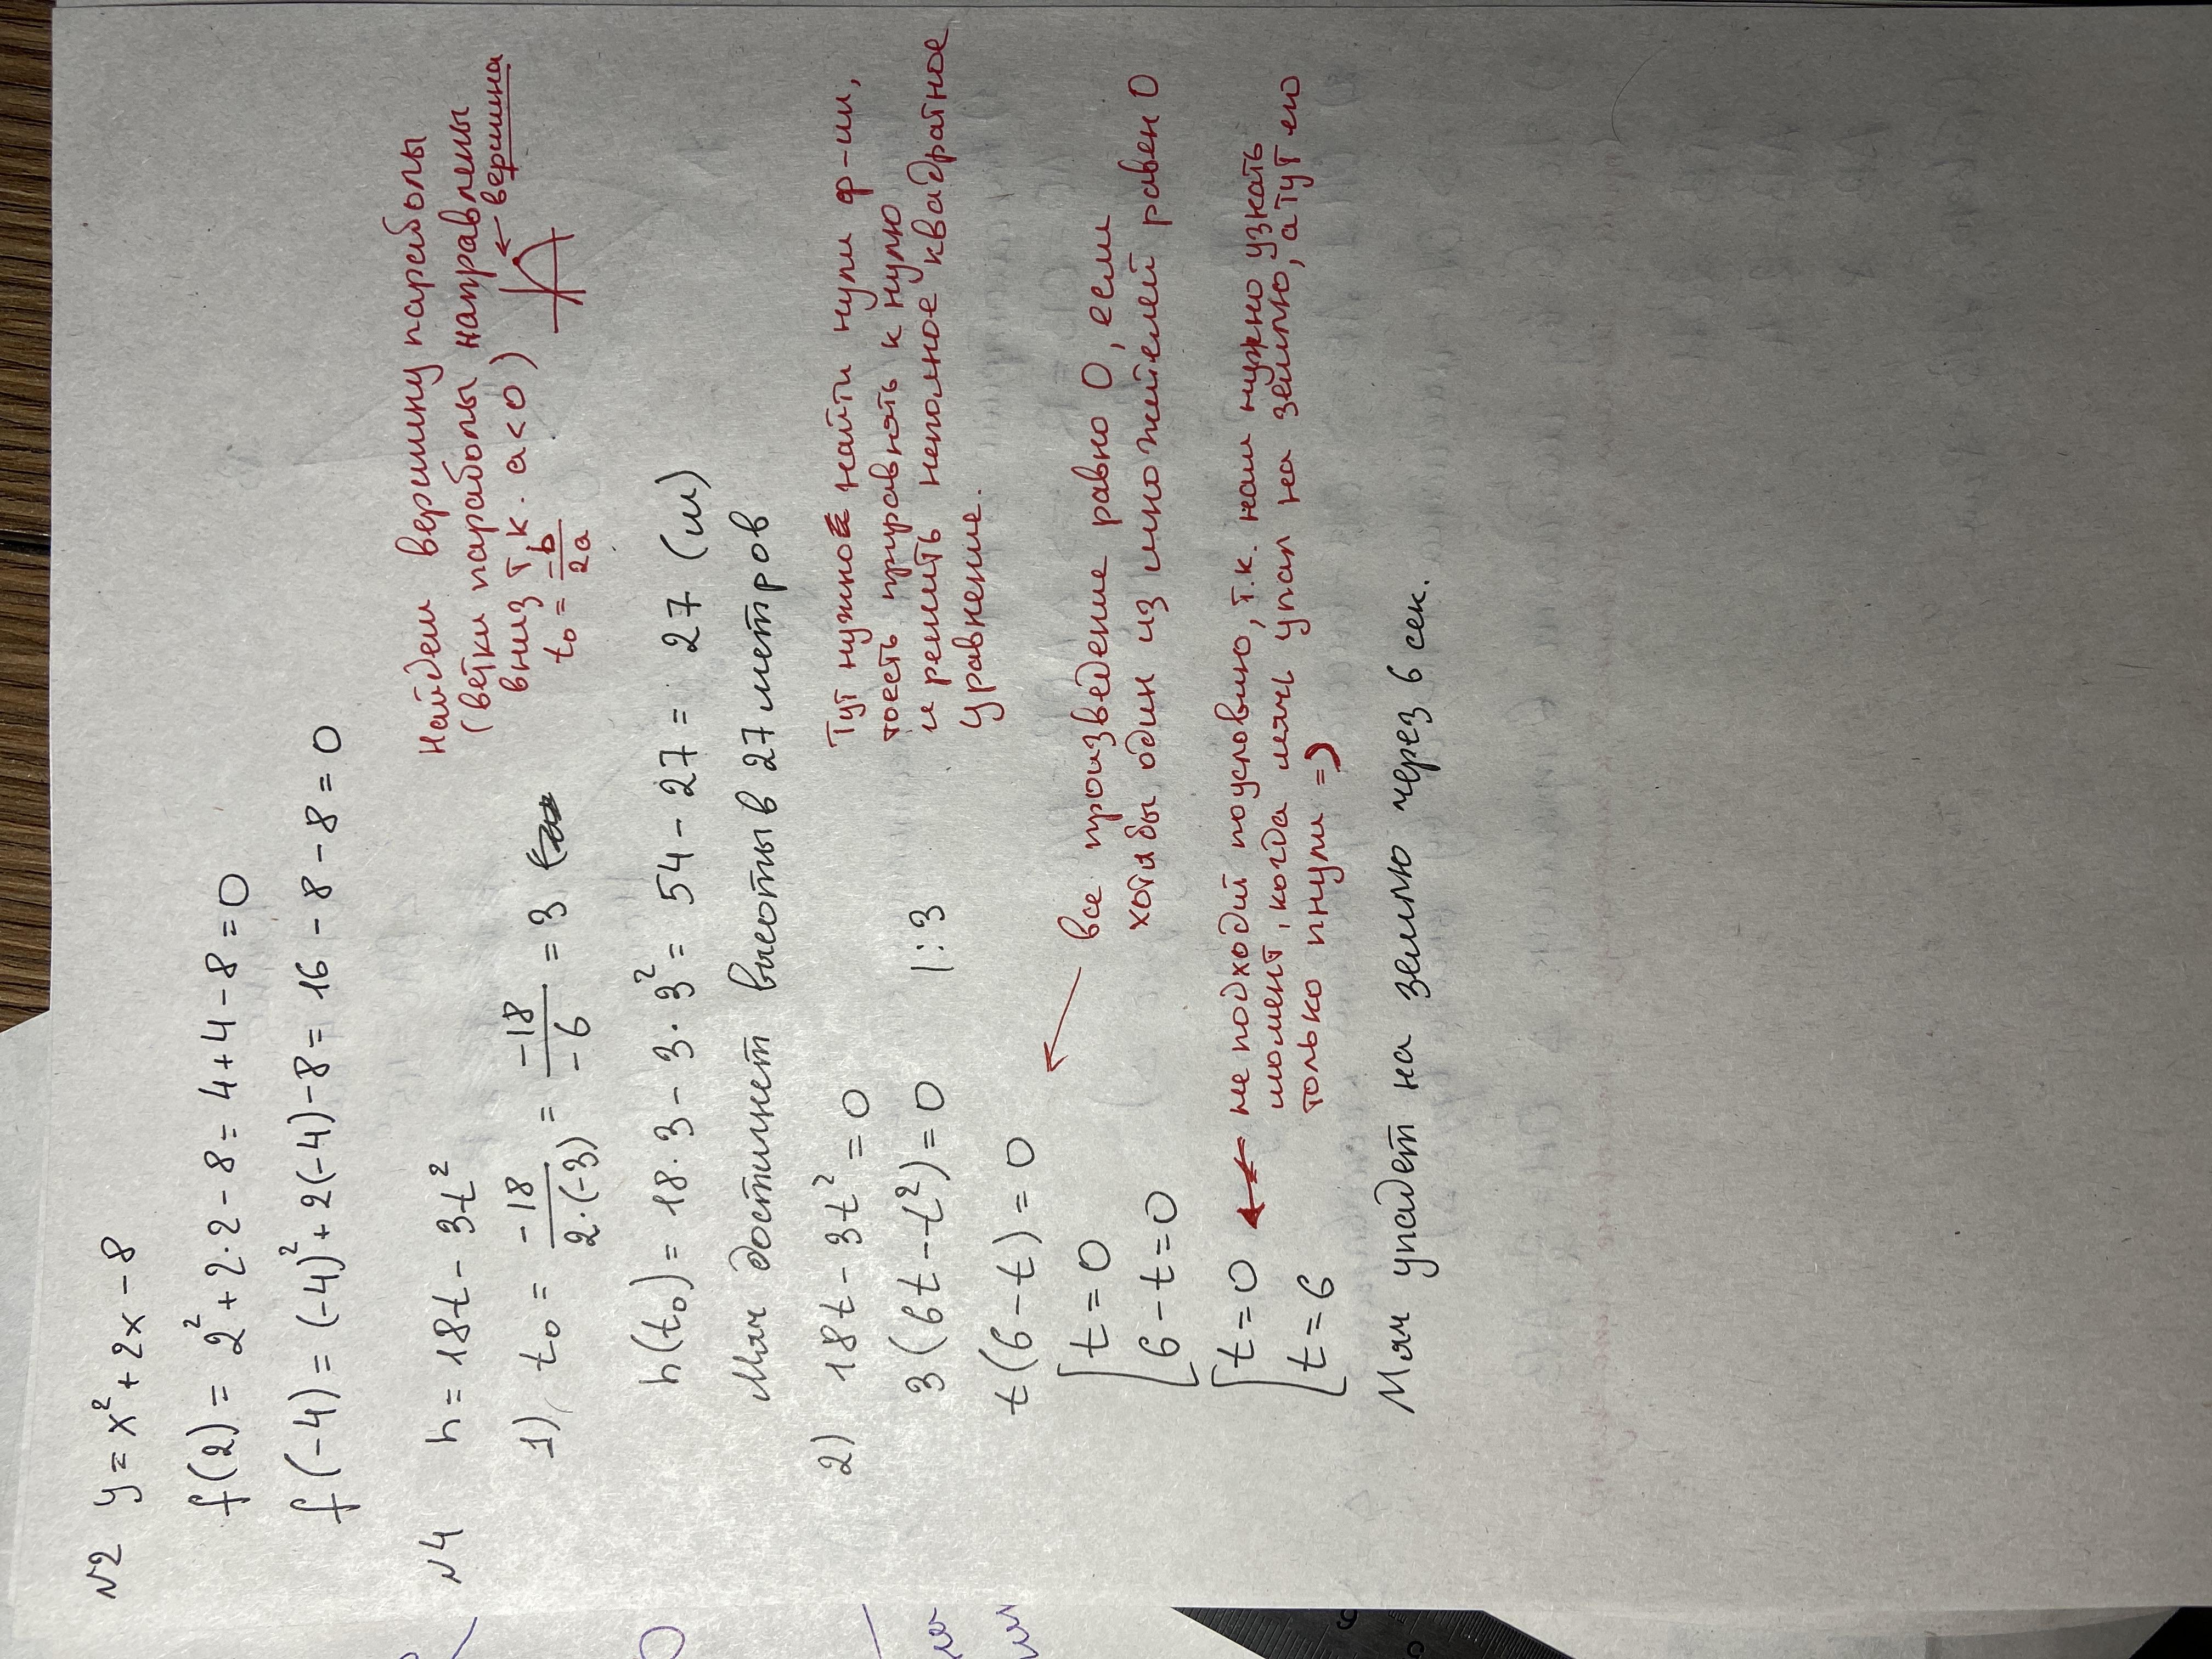 №2 y = x² + 2x - 8
f(2) = 2² + 2·2 - 8 = 4 + 4 - 8 = 0
f(-4) = (-4)² + 2(-4) - 8 = 16 - 8 - 8 = 0
№4 h = 18t - 3t²
Найдем вершину параболы
(ветки параболы направлены
вниз т.к. a < 0)
вершина
t₀ = -b/2a
1) t₀ = -18/2·(-3) = -18/-6 = 3
h(t₀) = 18·3 - 3·3² = 54 - 27 = 27 (м)
Мяч достигнет высоты в 27 метров
Тут нужно найти нули ф-ии,
тоесть приравнять к нулю
и решить неполное квадратное
уравнение.
2) 18t - 3t² = 0
3(6t - t²) = 0 |:3
t(6 - t) = 0
все произведение равно 0, если
хотябы один из множителей равен 0
[t = 0
6 - t = 0
[t = 0
t = 6
не подходит поусловию, т.к. нам нужно узнать
момент, когда мячь упал на землю, а тут его
только пнули =)
Мяч упадет на землю через 6 сек.